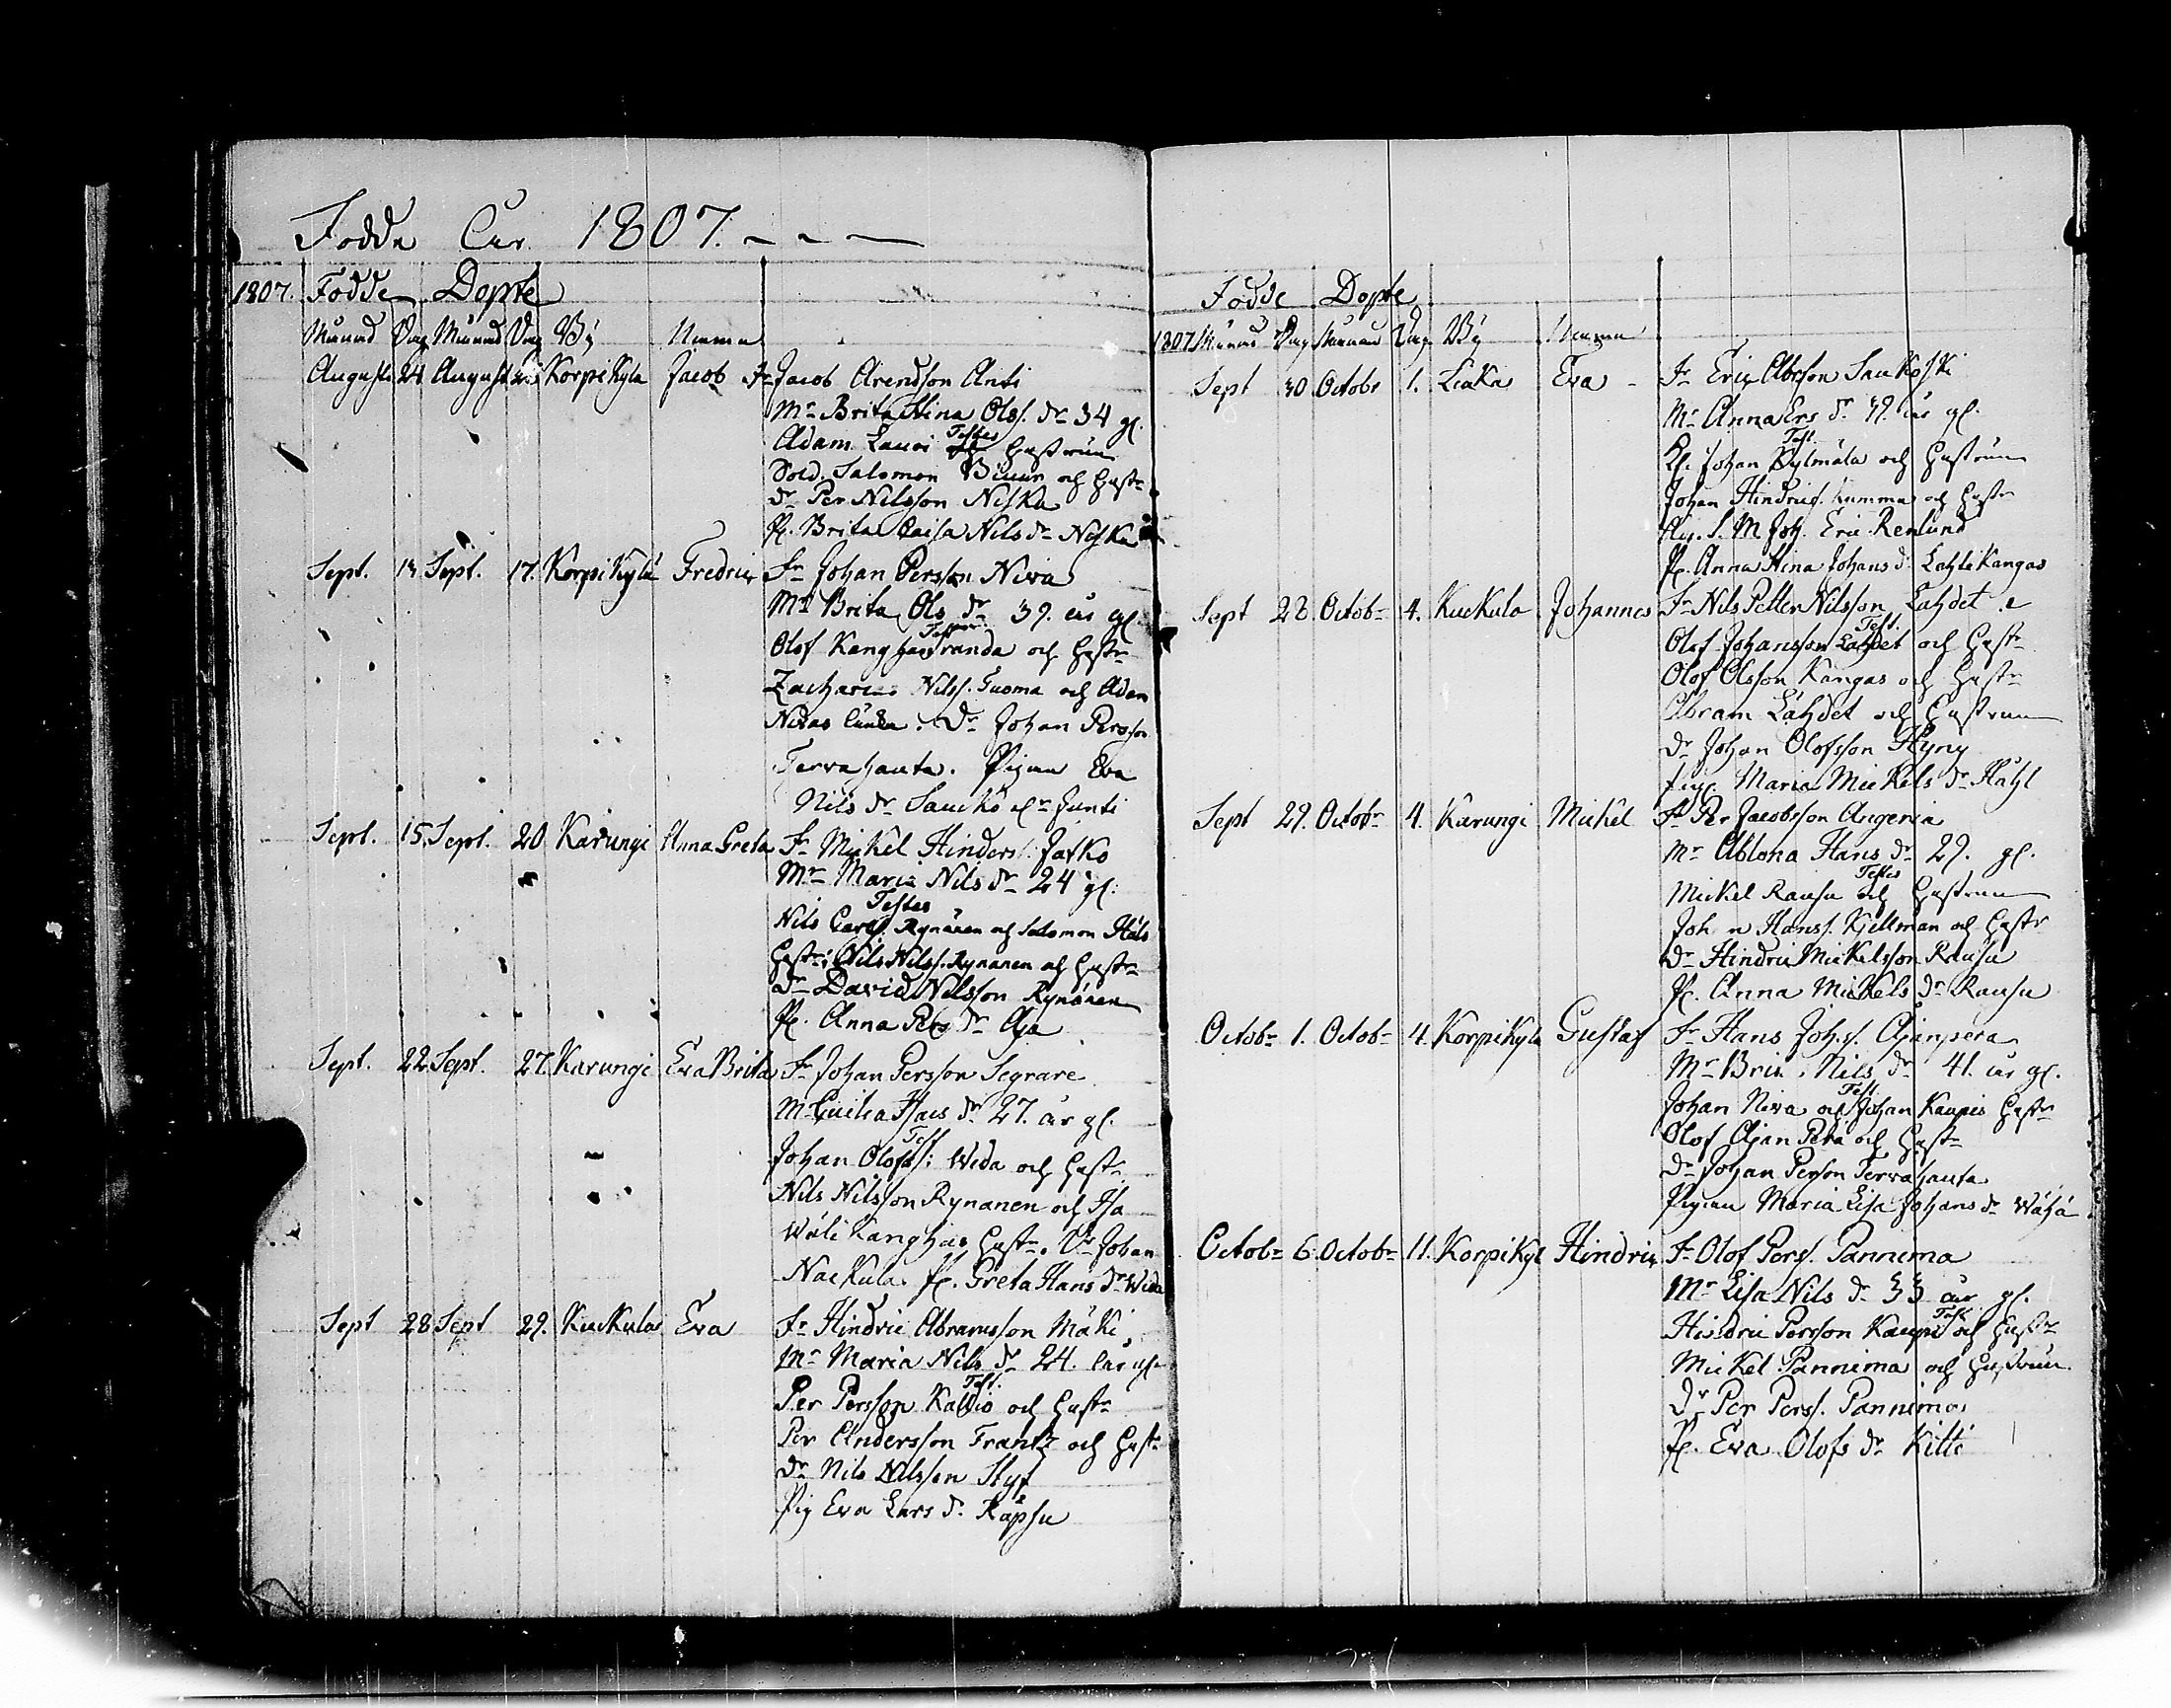 Födde År 1807.
1807. Födde Döpte
Månad Dag Månad Dag By Namn
Augusti 24 August KorpiKyla Jacob Fr Jacob Arendson Anti
Mr Brita Stina Ols. dr 34 gl.
Testes
Adam Lauri och Hustrun
Sold. Salomon Biuur och Hustr
Dr Per Nilsson Niska
P. Brita Caisa Nils dr Niska
Sept. Sept. 17. KorpiKylä Fredric Fr Johan Persson Niva
Mr Brita Ols dr 39. år gl.
Olof Kanghastranda och Hustr
Zacharias Nilss. Tuoma och Adam
Nivas Enka. Dr Johan Persson
Tervahauta. Pigan Eva
Nils dr Saucko
Sept. 15. Sept. 20 Karungi Anna Greta Fr Mickel Hinders. Jatko
Mr Maria Nils dr 24 gl.
Testes
Nils Carls. Rynänen och Salomon Håls
Hustr; Nils Nilss. Rynanen och Hustr
Dr David Nilsson Rynänen
P. Anna Pers dr Aja
Sept. 22. Sept. 27. Karungi Eva Brita Fr Johan Persson Segrare
Mr Cecilia Hans dr 27. år gl.
Test
Johan Olofs: Wida och Hustr
Nils Nilsson Rynanen och Isa
Wäli Kanghas Hustr. Dr Johan
Nackula. P. Greta Hans dr Wida
Sept 28 Sept 29. Kuckula Eva Fr Hindric Abramsson Mäki
Mr Maria Nils dr 24. år gl.
Test.
Per Persson Kallio och Hustr
Per Andersson Frantz och Hustr
Dr Nils Nilsson Styf
Pig Eva Lars d. Räpsu
Födde Döpte
1807 Månad Dag Månad Dag By Namn
Sept 30 Octobr 1. Liaka Eva Fr Eric Abrsson Saukoski
Mr Anna Ers dr 39. år gl.
Test
Johan Kylmäla och Hustrun
Johan Hindrics. Kumma och Hustr
S. M Joh. Eric Renlund
P. Anna Stina Johans d. Lahti Kangas
Sept 28. Octobr 4. Kuckula Johannes Fr Nils Petter Nilsson Lahdet
Test.
Olof Johansson Lahdet och Hustr
Olof Olsson Kangas och Hustr
Abram Lahdet och Hustrun
Dr Johan Olofsson Hyny
Pig. Maria Mickels dr Stahl
Sept 29. Octobr 4. Karungi Mickel Fr Per Jacobsson Angeria
Mr Ablona Hans dr 29. gl.
Testes
Mickel Rausu och Hustrun
Joh n Hanss. Kjellman och Hustr
Dr Hindric Mickelsson Rausu
P. Anna Mickels dr Rausu
Octobr 1. Octobr 4. KorpiKyla Gustaf Fr Hans Johss. Ajanpera
Mr Brit. Nils dr 41. år gl.
Test
Johan Niva och Johan Kaupis Hustr
Olof Ajan Perä och Hustr
Dr Johan Person Tervahauta
Pigan Maria Lisa Johans dr Wähä
Octobr 6. Octobr 11. KorpiKyl Hindric Fr Olof Pers. Pannima
Mr Lisa Nils dr 33 år gl.
Test
Hindric Persson Kaupi och Hustr
Mickel Pannima och Hustrun
Dr Per Pers. Pannima
P. Eva Olofs dr Kitti